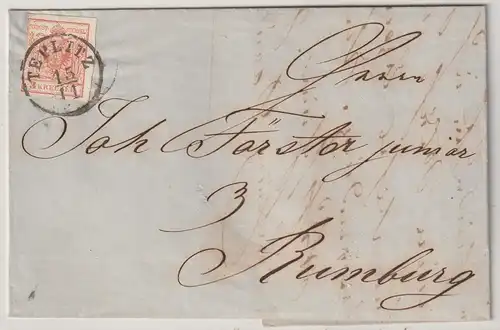 TEPLITZ
15
11
KREUZER
Herrn
Joh Förster junior
3
Rumburg